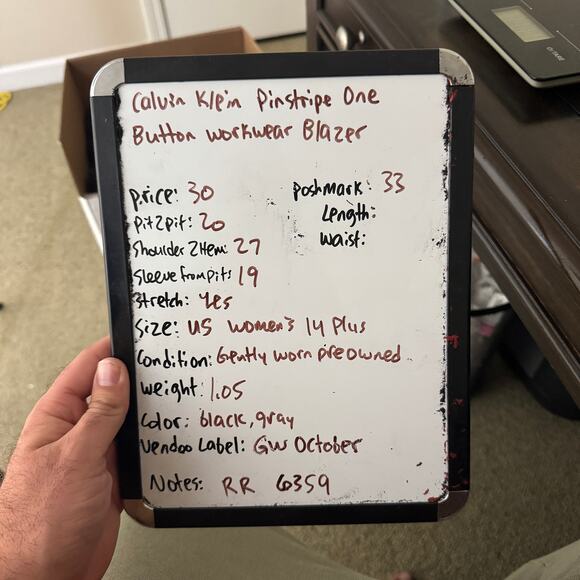 Calvin Klein Pinstripe One
Button workwear Blazer
price: 30
Poshmark: 33
Pit2pit: 20
Length:
Shoulder 2 Hem: 27
Waist:
Sleeve from pits 19
Stretch: yes
Size: US women's 14 Plus
Condition: Gently worn preowned
weight: 1.05
Color: black, gray
Vendoo Label: GW October
Notes: RR 6359